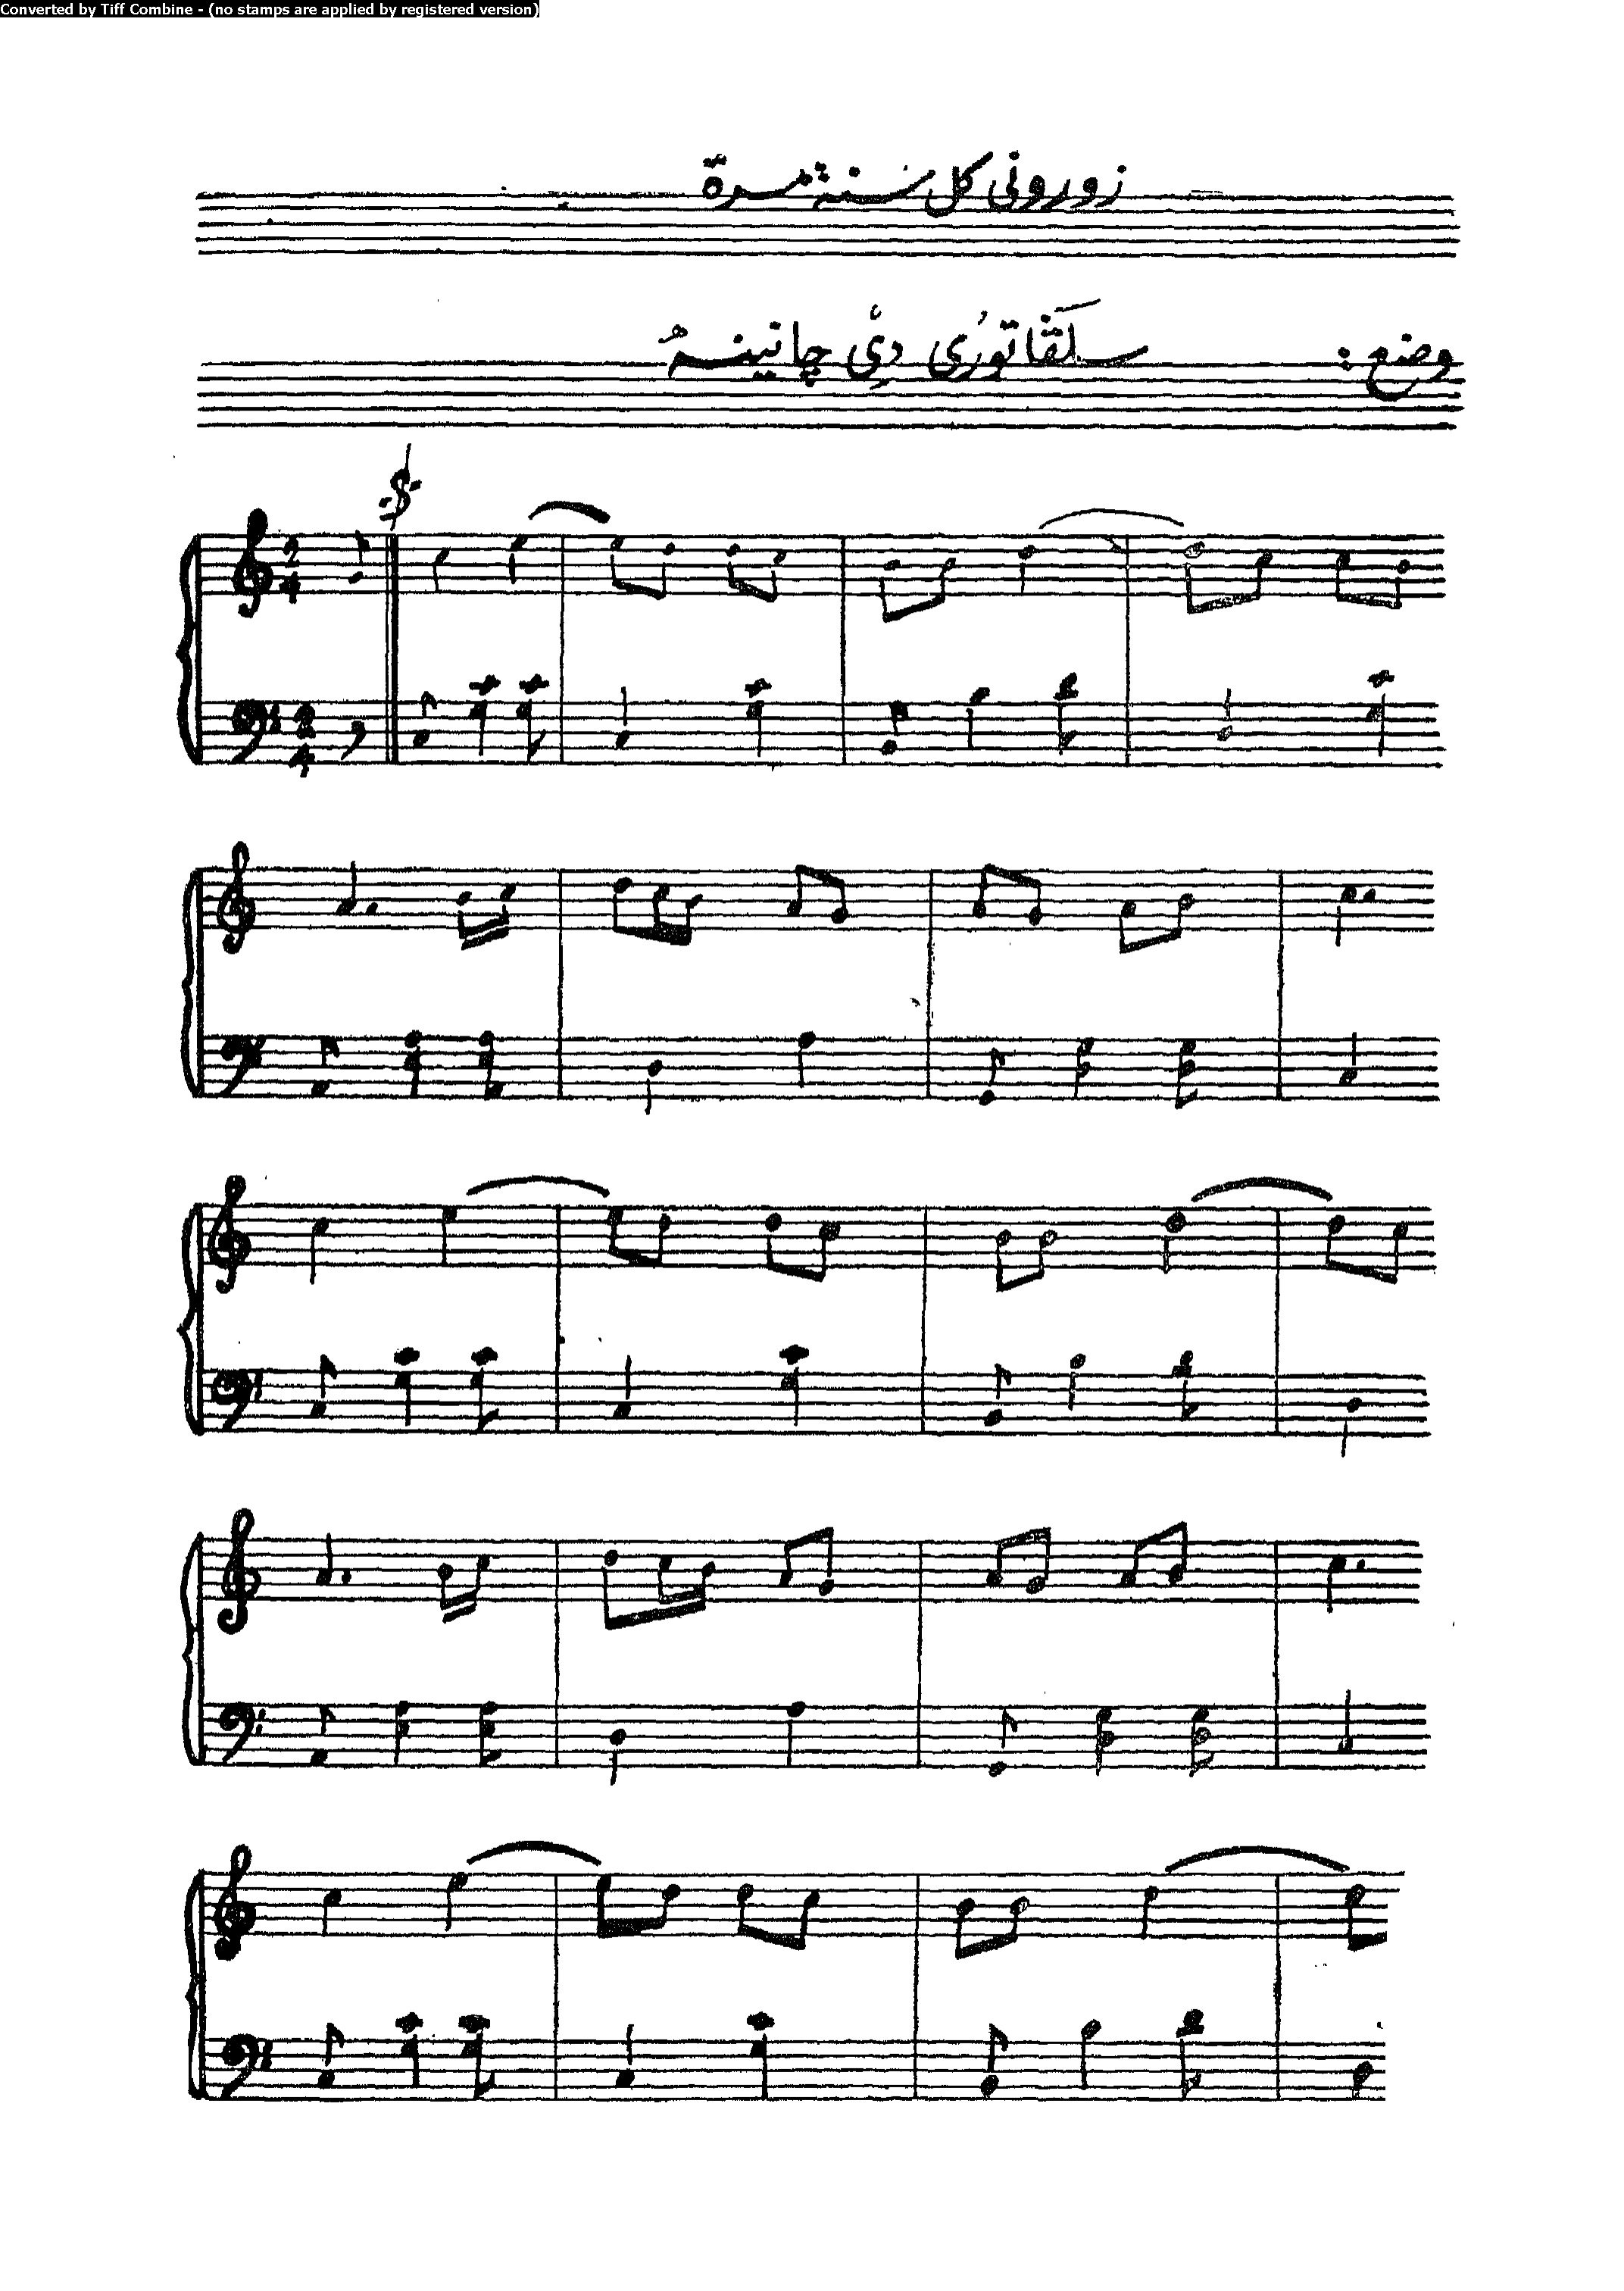 Converted by Tiff Combine - (no stamps are applied by registered version)
زوروني كل سنة مرة
وضع : سلڤاتوري دي چانينم
2
4
2
4